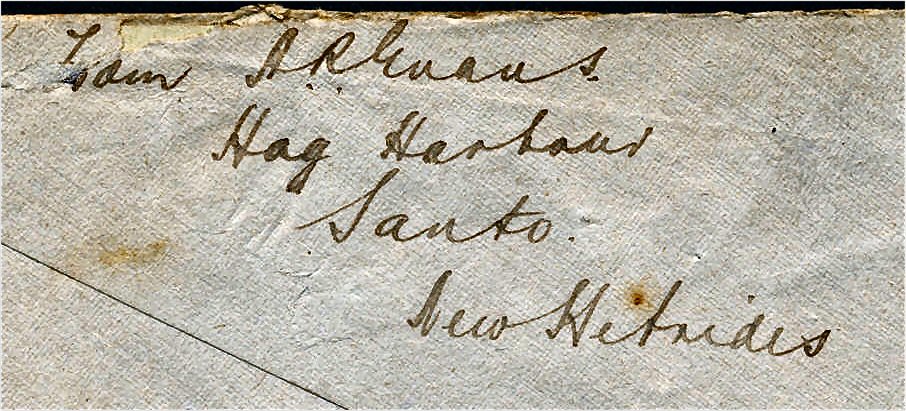 From A.R. Evans.
Hog Harbour
Santo.
New Hebrides